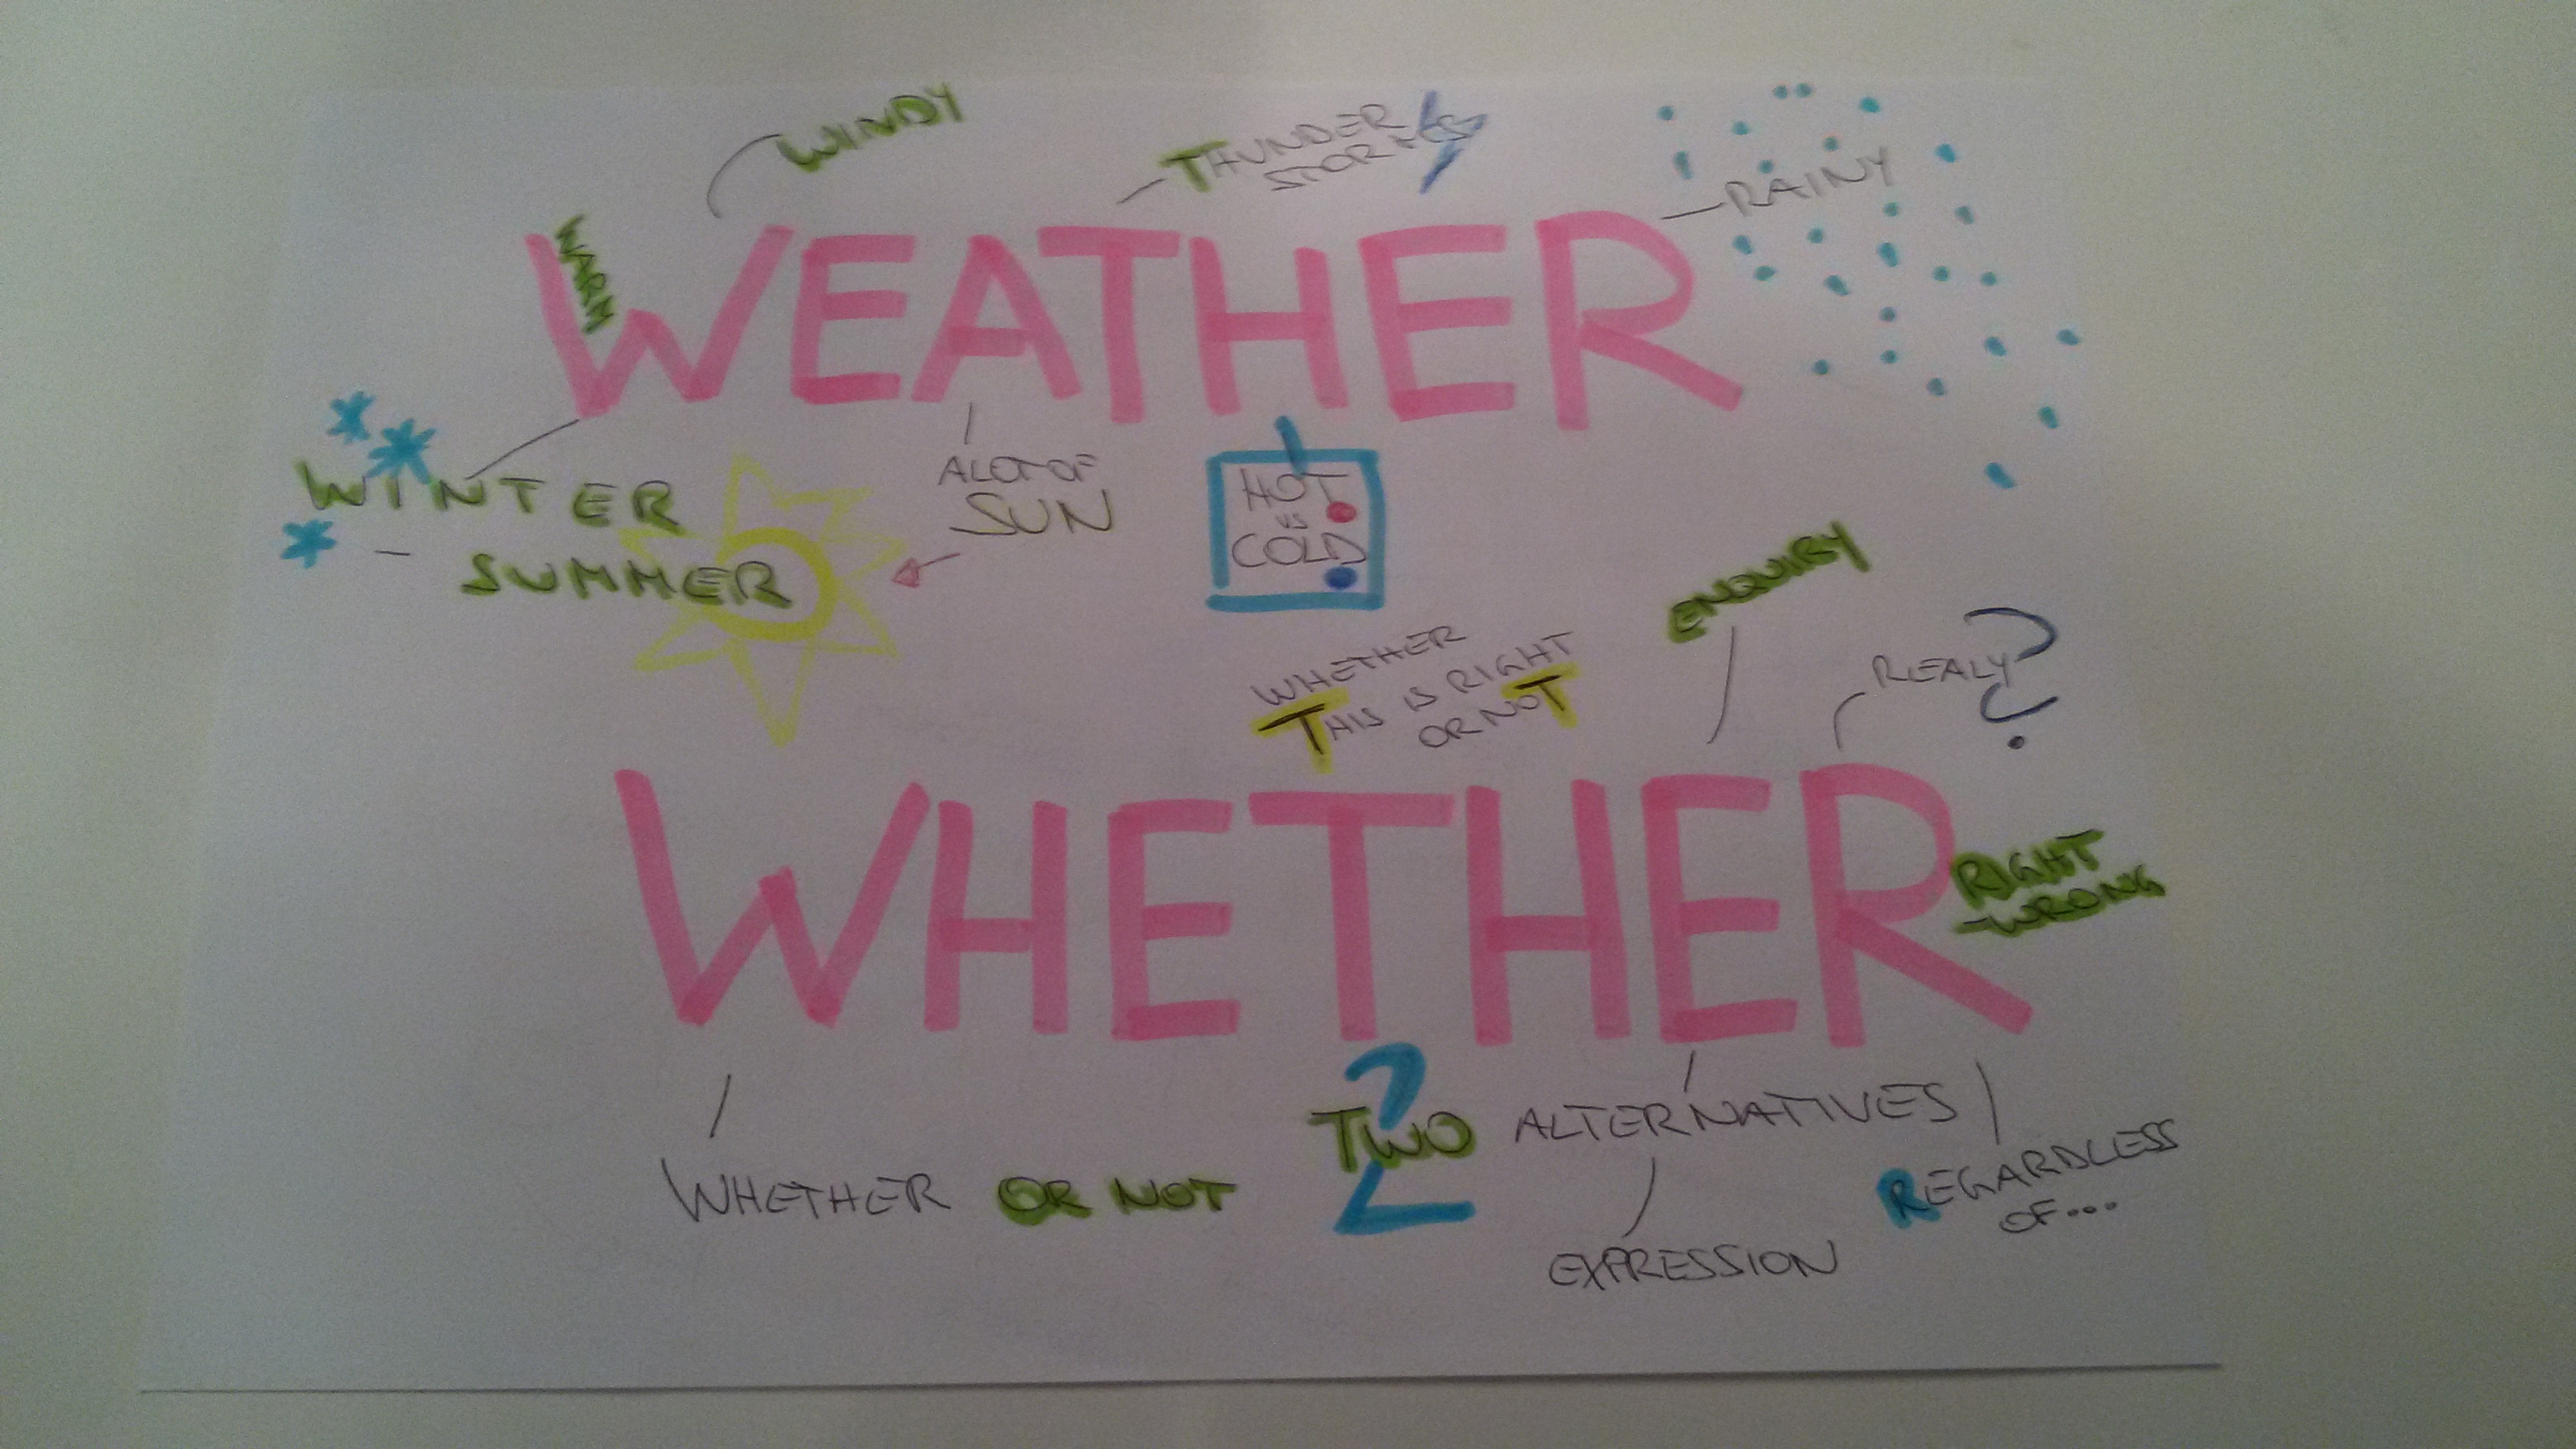 WINDY
THUNDER
STORMS
RAINY
WARM
WEATHER
WINTER
SUMMER
ALOT OF
SUN
HOT
VS
COLD
ENQUIRY
WHETHER
THIS IS RIGHT
OR NOT
REALY?
WHETHER
RIGHT
-WRONG
WHETHER OR NOT
2
TWO ALTERNATIVES
REGARDLESS
OF...
EXPRESSION